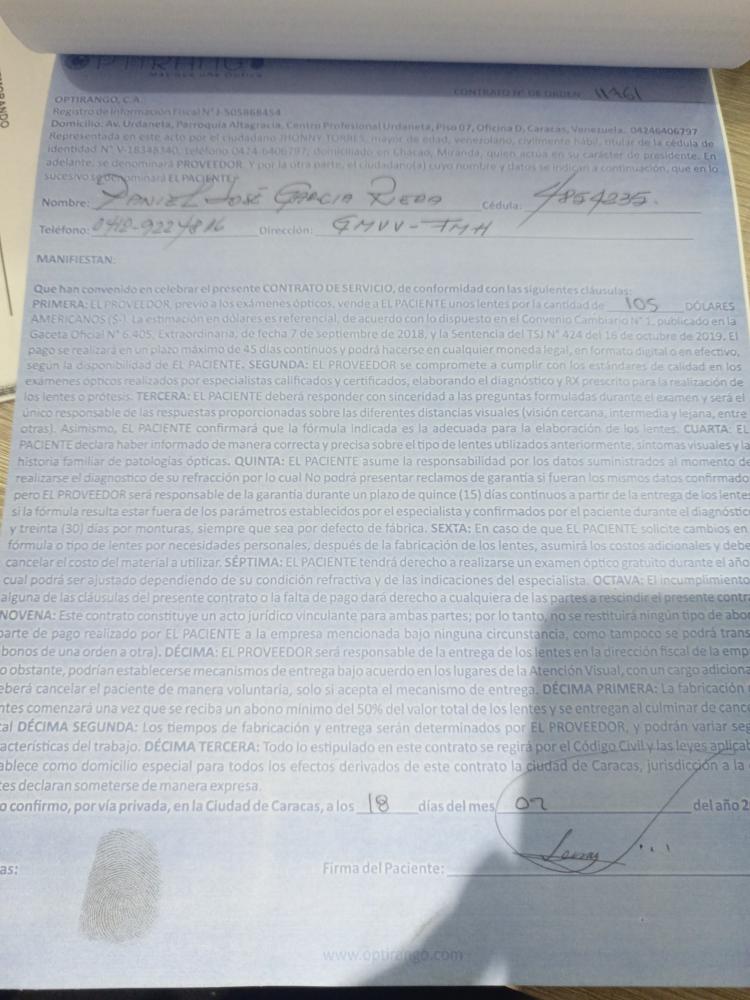 OPTIRANGO
CONTRATO N° DE ORDEN 11961
OPTIRANGO, C.A.
Registro de Información Fiscal N° J-505868454
Domicilio: Av. Urdaneta, Parroquia Altagracia, Centro Profesional Urdaneta, Piso 07, Oficina D, Caracas, Venezuela. 04246406797
Representada en este acto por el ciudadano JHONNY TORRES, mayor de edad, venezolano, civilmente hábil, titular de la cédula de
identidad N° V-18348340, teléfono 0424-6406797, domiciliado en Chacao, Miranda, quien actúa en su carácter de presidente. En
adelante, se denominará PROVEEDOR. Y por la otra parte, el ciudadano(a) cuyo nombre y datos se indican a continuación, que en lo
sucesivo se denominará EL PACIENTE:
Nombre: DANIEL JOSÉ GARCIA Cédula: 4854235.
Teléfono: Dirección: GMVV-TMH
MANIFIESTAN:
Que han convenido en celebrar el presente CONTRATO DE SERVICIO, de conformidad con las siguientes cláusulas:
PRIMERA: EL PROVEEDOR, previo a los exámenes ópticos, vende a EL PACIENTE unos lentes por la cantidad de 105 DÓLARES
AMERICANOS ($-). La estimación en dólares es referencial, de acuerdo con lo dispuesto en el Convenio Cambiario N° 1, publicado en la
Gaceta Oficial N° 6.405, Extraordinaria, de fecha 7 de septiembre de 2018, y la Sentencia del TSJ N° 424 del 16 de octubre de 2019. El
pago se realizará en un plazo máximo de 45 días continuos y podrá hacerse en cualquier moneda legal, en formato digital o en efectivo,
según la disponibilidad de EL PACIENTE. SEGUNDA: EL PROVEEDOR se compromete a cumplir con los estándares de calidad en los
exámenes ópticos realizados por especialistas calificados y certificados, elaborando el diagnóstico y RX prescrito para la realización de
los lentes o prótesis. TERCERA: EL PACIENTE deberá responder con sinceridad a las preguntas formuladas durante el examen y será el
único responsable de las respuestas proporcionadas sobre las diferentes distancias visuales (visión cercana, intermedia y lejana, entre
otras). Asimismo, EL PACIENTE confirmará que la fórmula indicada es la adecuada para la elaboración de los lentes. CUARTA: EL
PACIENTE declara haber informado de manera correcta y precisa sobre el tipo de lentes utilizados anteriormente, síntomas visuales y la
historia familiar de patologías ópticas. QUINTA: EL PACIENTE asume la responsabilidad por los datos suministrados al momento de
realizarse el diagnostico de su refracción por lo cual No podrá presentar reclamos de garantía si fueran los mismos datos confirmado
pero EL PROVEEDOR será responsable de la garantía durante un plazo de quince (15) días continuos a partir de la entrega de los lentes
si la fórmula resulta estar fuera de los parámetros establecidos por el especialista y confirmados por el paciente durante el diagnóstic
y treinta (30) días por monturas, siempre que sea por defecto de fábrica. SEXTA: En caso de que EL PACIENTE solicite cambios en
fórmula o tipo de lentes por necesidades personales, después de la fabricación de los lentes, asumirá los costos adicionales y debe
cancelar el costo del material a utilizar. SÉPTIMA: EL PACIENTE tendrá derecho a realizarse un examen óptico gratuito durante el año
cual podrá ser ajustado dependiendo de su condición refractiva y de las indicaciones del especialista. OCTAVA: El incumplimiento
alguna de las cláusulas del presente contrato o la falta de pago dará derecho a cualquiera de las partes a rescindir el presente contra
NOVENA: Este contrato constituye un acto jurídico vinculante para ambas partes; por lo tanto, no se restituirá ningún tipo de abo
parte de pago realizado por EL PACIENTE a la empresa mencionada bajo ninguna circunstancia, como tampoco se podrá trans
bonos de una orden a otra). DÉCIMA: EL PROVEEDOR será responsable de la entrega de los lentes en la dirección fiscal de la emp
o obstante, podrían establecerse mecanismos de entrega bajo acuerdo en los lugares de la Atención Visual, con un cargo adiciona
eberá cancelar el paciente de manera voluntaria, solo si acepta el mecanismo de entrega. DÉCIMA PRIMERA: La fabricación
ntes comenzará una vez que se reciba un abono mínimo del 50% del valor total de los lentes y se entregan al culminar de cance
al DÉCIMA SEGUNDA: Los tiempos de fabricación y entrega serán determinados por EL PROVEEDOR, y podrán variar seg
acterísticas del trabajo. DÉCIMA TERCERA: Todo lo estipulado en este contrato se regirá por el Código Civil y las leyes aplicab
ablece como domicilio especial para todos los efectos derivados de este contrato la ciudad de Caracas, jurisdicción a la
es declaran someterse de manera expresa.
o confirmo, por vía privada, en la Ciudad de Caracas, a los 18 días del mes 02 del año 2
as: Firma del Paciente:
www.optirango.com